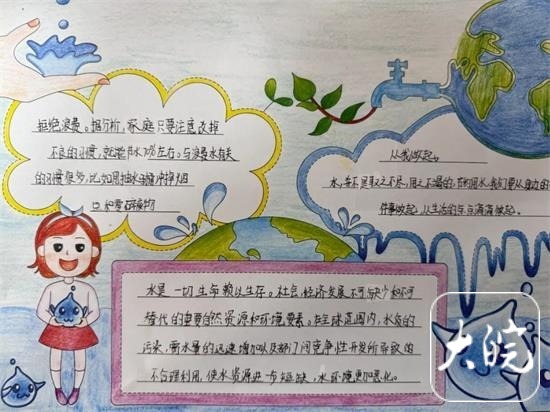 拒绝浪费。据分析，家庭只要注意改掉
不良的习惯，就能节水70%左右。与浪费水有关
的习惯很多，比如用抽水马桶冲掉烟
和零碎废物
从我做起。
水，并不是取之不尽，用之不竭的，节约用水，我们要从身边的
件事做起，从生活的点点滴滴做起。
水是一切生命赖以生存。社会、经济发展不可缺少和不可
替代的重要自然资源和环境要素。在全球范围内，水质的
污染，需水量的迅速增加以及部门间竞争性开发所导致的
不合理利用，使水资源进一步短缺，水环境更加恶化。
大皖